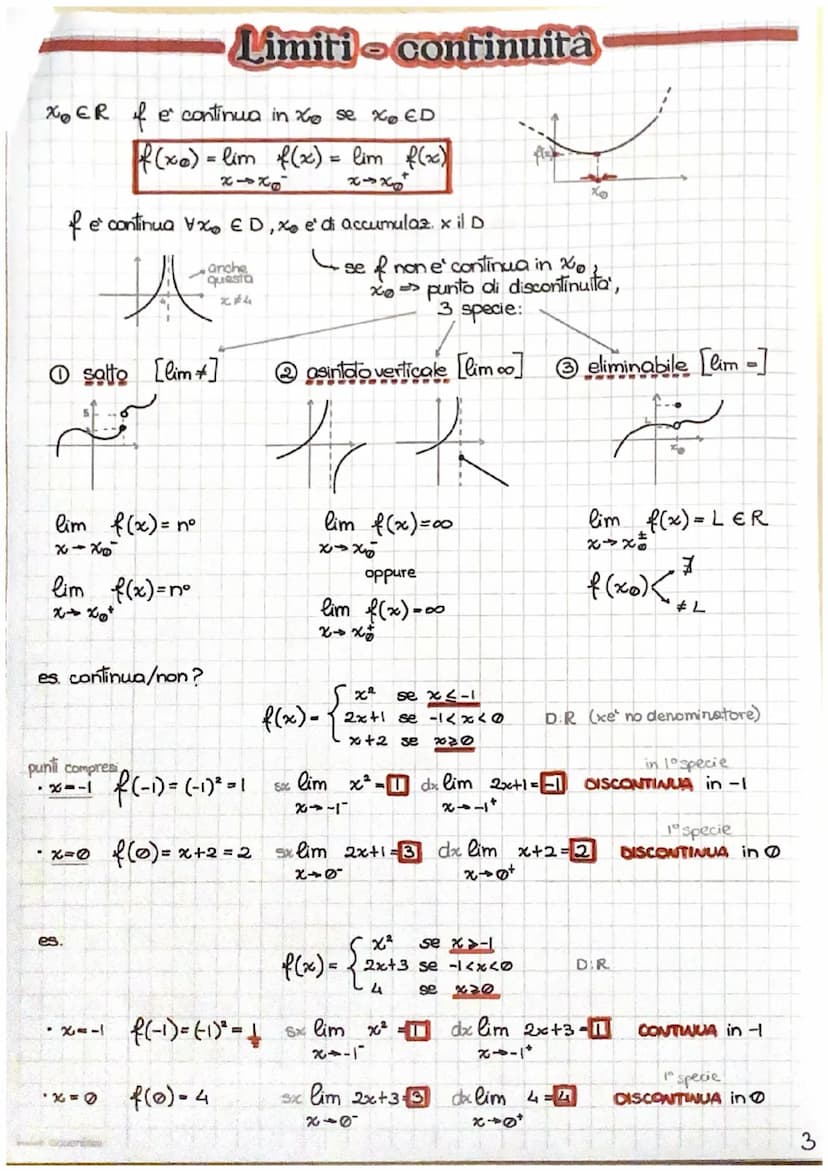 Limiti - continuità
x₀ ∈ R f e' continua in x₀ se x₀ ∈ D
f(x₀) = lim x→x₀⁻ f(x) = lim x→x₀⁺ f(x)
x₀
f e' continua ∀x₀ ∈ D, x₀ e' di accumulaz. x il D
anche questa x≠4
se f non e' continua in x₀,
x₀ => punto di discontinuita',
3 specie:
① salto [lim ≠] ② asintoto verticale [lim ∞] ③ eliminabile [lim =]
L
x₀
lim x→x₀⁻ f(x) = n° lim x→x₀⁻ f(x) = ∞ lim x→x₀± f(x) = L ∈ R
oppure
lim x→x₀⁺ f(x) = n° lim x→x₀⁺ f(x) = ∞ f(x₀) < ∄ ≠ L
es. continua/non?
f(x) = { x² se x ≤ -1
2x+1 se -1 < x < 0 D:R (xe' no denominatore)
x+2 se x ≥ 0
punti compresi in 1° specie
· x=-1 f(-1) = (-1)² = 1 sx lim x→-1⁻ x² = 1 dx lim x→-1⁺ 2x+1 = -1 DISCONTINUA in -1
1° specie
· x=0 f(0) = x+2 = 2 sx lim x→0⁻ 2x+1 = 3 dx lim x→0⁺ x+2 = 2 DISCONTINUA in 0
es.
f(x) = { x² se x ≥ -1
2x+3 se -1 < x < 0 D:R
4 se x ≥ 0
· x=-1 f(-1) = (-1)² = 1 sx lim x→-1⁻ x² = 1 dx lim x→-1⁺ 2x+3 = 1 CONTINUA in -1
1° specie
· x=0 f(0) = 4 sx lim x→0⁻ 2x+3 = 3 dx lim x→0⁺ 4 = 4 DISCONTINUA in 0
3